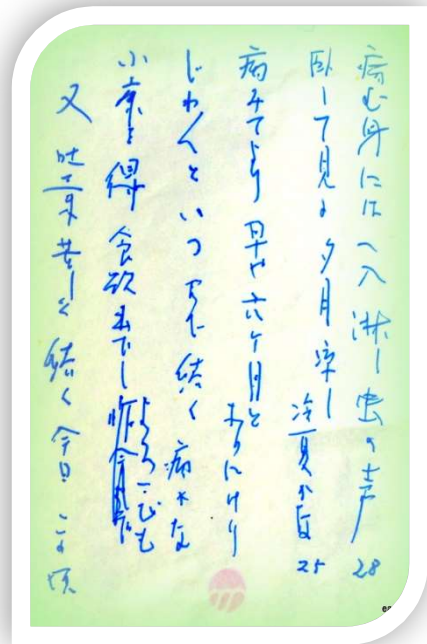 病む身には一入淋し虫の声 28
臥して見る夕月凉し 冷夏かな 25
病みてより早や六ケ月と なりにけり
じわ〱といつまで続く 病かな
小康を得 食欲出でし よろこびも
又吐き気苦しく続く今日この頃